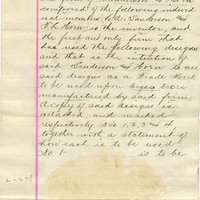 composed of the following individ-
ual members L.A. Sanderson and
F.L. Horn is the inventor, and
the first and only firm that
has used the following designs
and that is the intention of
said Sanderson and Horn to use
said designs as a Trade Mark
to be used upon cigars
manufactured by said firm.
A copy of said designs is
attached, and marked
respectively No. 1, 2, 3 and 4,
together with a statement of
how each is to be used
No 1- is to be